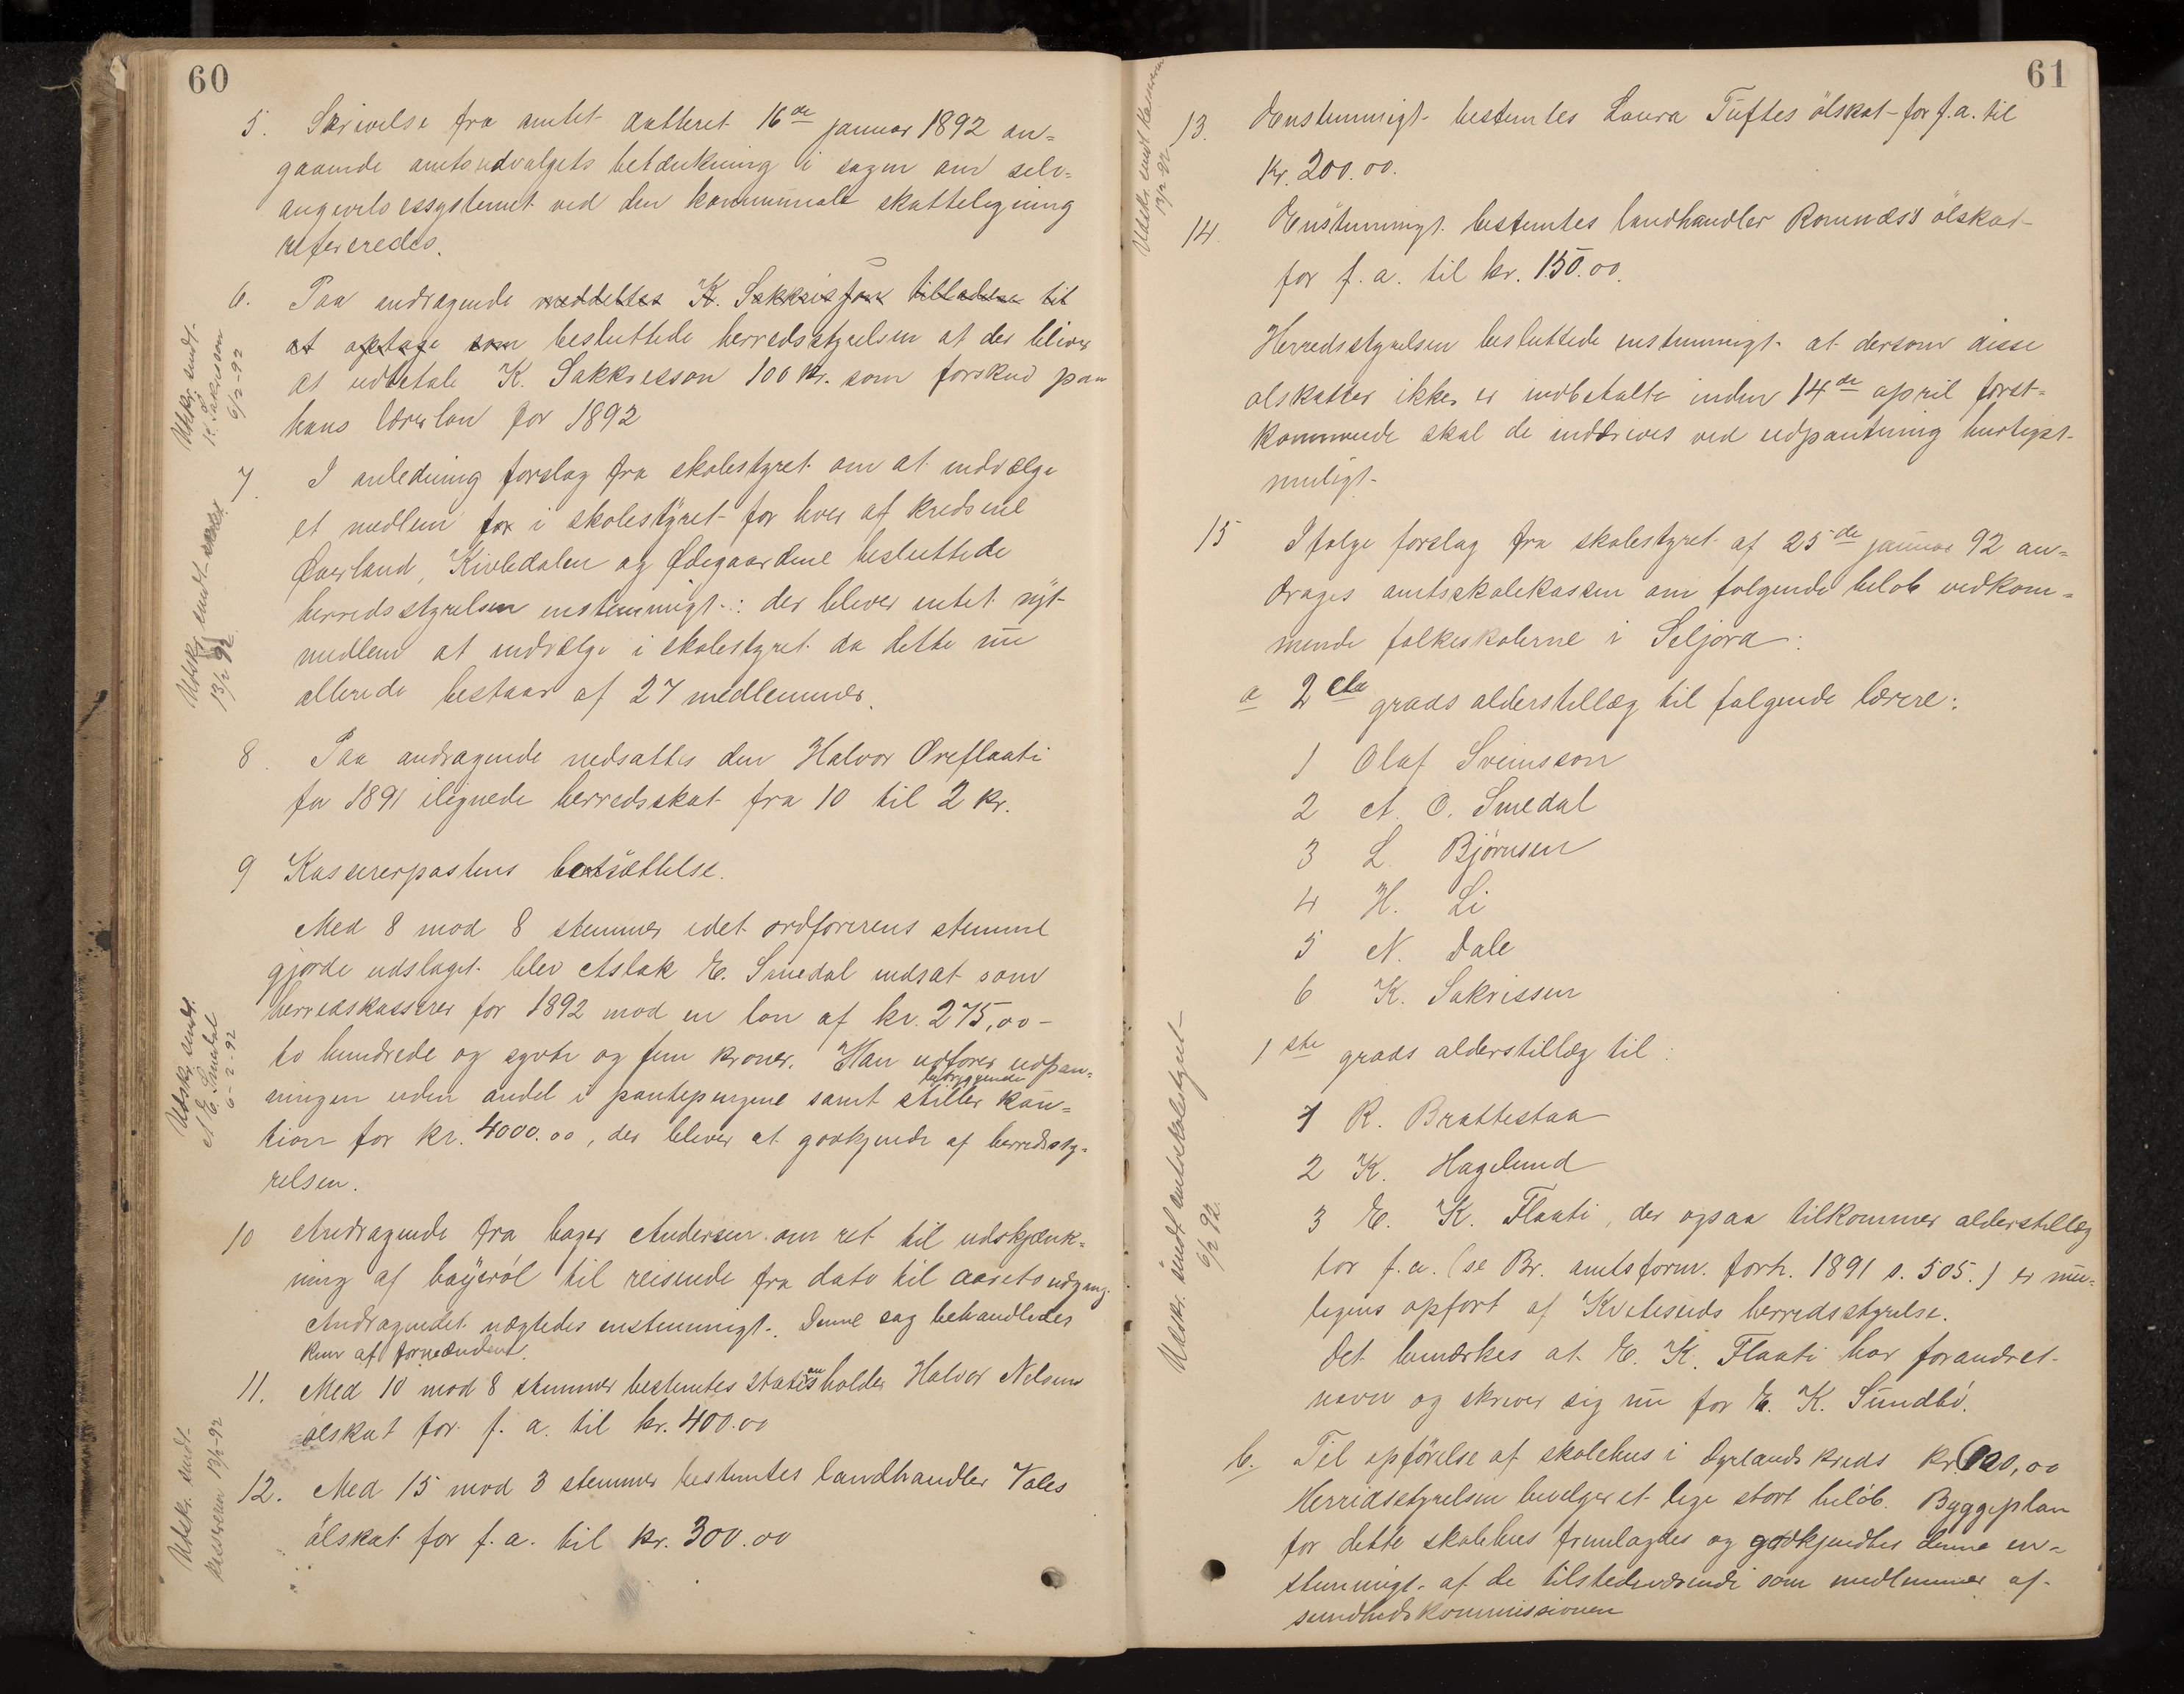 60
5. Skrivelse fra amtet datteret 16de januar 1892 an=
gaaende amtsudvalgets betænkning i sagen om selv=
angivelsessystemet ved den kommunale skatteligning
refereredes.
6. Paa andragende meddeltes K. Sakkrisson tilladelse til
at optage som besluttede herredsstyrelsen at der bliver
at udbetale K. Sakkrisson 100 kr. som forskud paa
hans lærerløn for 1892
Udskr. sendt
K. Sakrisson
6/2-92
7. I anledning forslag fra skolestyret om at indvælge
et medlem for i skolestyret for hver af kredsene
Øverland, Kivledalen og Ødegaardene besluttede
herredsstyrelsen enstemmigt: der bliver intet nyt
medlem at indvælge i skolestyret da dette nu
allerede bestaar af 27 medlemmer.
Udskr. sendt
13/2 92
8. Paa andragende nedsattes den Halvor Øreflaati
for 1891 ilignede herredsskat fra 10 til 2 kr.
9 Kassererpostens besættelse.
Med 8 mod 8 stemmer idet ordførerens stemme
gjorde udslaget blev Aslak E. Smedal indsat som
herredskasserer for 1892 mod en løn af kr. 275,00 -
to hundrede og sytti og fem kroner. Han udfører udpan=
tryggende
ningen uden andel i pantepengene samt stiller kau=
tion for kr. 4000.00, der bliver at godkjende af herredssty=
relsen.
Udskr. sendt
A. E. Smedal
6-2-92
10 Andragende fra bager Andersen om ret til udskjænk=
ning af bayerøl til reisende fra dato til aarets udgang.
Andragendet nægtedes enstemmigt. Denne sag behandledes
kun af formændene.
11. Med 10 mod 8 stemmer bestemtes stationsholder Halvor Nilsens
ølskat for f. a. til kr. 400.00
12. Med 15 mod 3 stemmer bestemtes landhandler Vales
ølskat for f. a. til kr. 300.00
Udskr. sendt
kassereren 13/2-92
61
13. Enstemmigt bestemtes Laura Tuftes ølskat for f. a. til
kr. 200.00.
Udskr. sendt kassereren
13/2-92
14. Enstemmigt bestemtes landhandler Romnæs's ølskat
for f. a. til kr. 150.00.
Herredsstyrelsen besluttede enstemmigt at dersom disse
ølskatter ikke er indbetalte inden 14de april først=
kommende skal de inddrives ved udpantning hurtigst
muligt.
15 Ifølge forslag fra skolestyret af 25de januar 92 an=
drages amtsskolekassen om følgende beløb vedkom=
mende folkeskolerne i Seljord:
a 2den grads alderstillæg til følgende lærere:
1 Olaf Sveinsson
2 A. O. Smedal
3 L. Bjørnsen
4 H. Li
5 N. Dale
6 K. Sakrissen
1ste grads alderstillæg til:
1 R. Brattestaa
2 K. Hagelund
3 E. K. Flaati, der ogsaa tilkommer alderstillæg
for f. a. (se Br. amtsform. forh. 1891 s. 505.) er mu=
ligens opført af Kviteseids herredsstyrelse.
Det bemærkes at E. K. Flaati har forandret
navn og skriver sig nu for E. K. Sundbö.
Udskr. sendt amtsskolestyret
6/2 92.
b. Til opførelse af skolehus i Dyrlands kreds kr. 600,00
Herredsstyrelsen bevilger et lige stort beløb. Byggeplan
for dette skolehus fremlagdes og godkjendtes denne en=
stemmigt af de tilstedeværende som medlemmer af
sundhedskommissionen